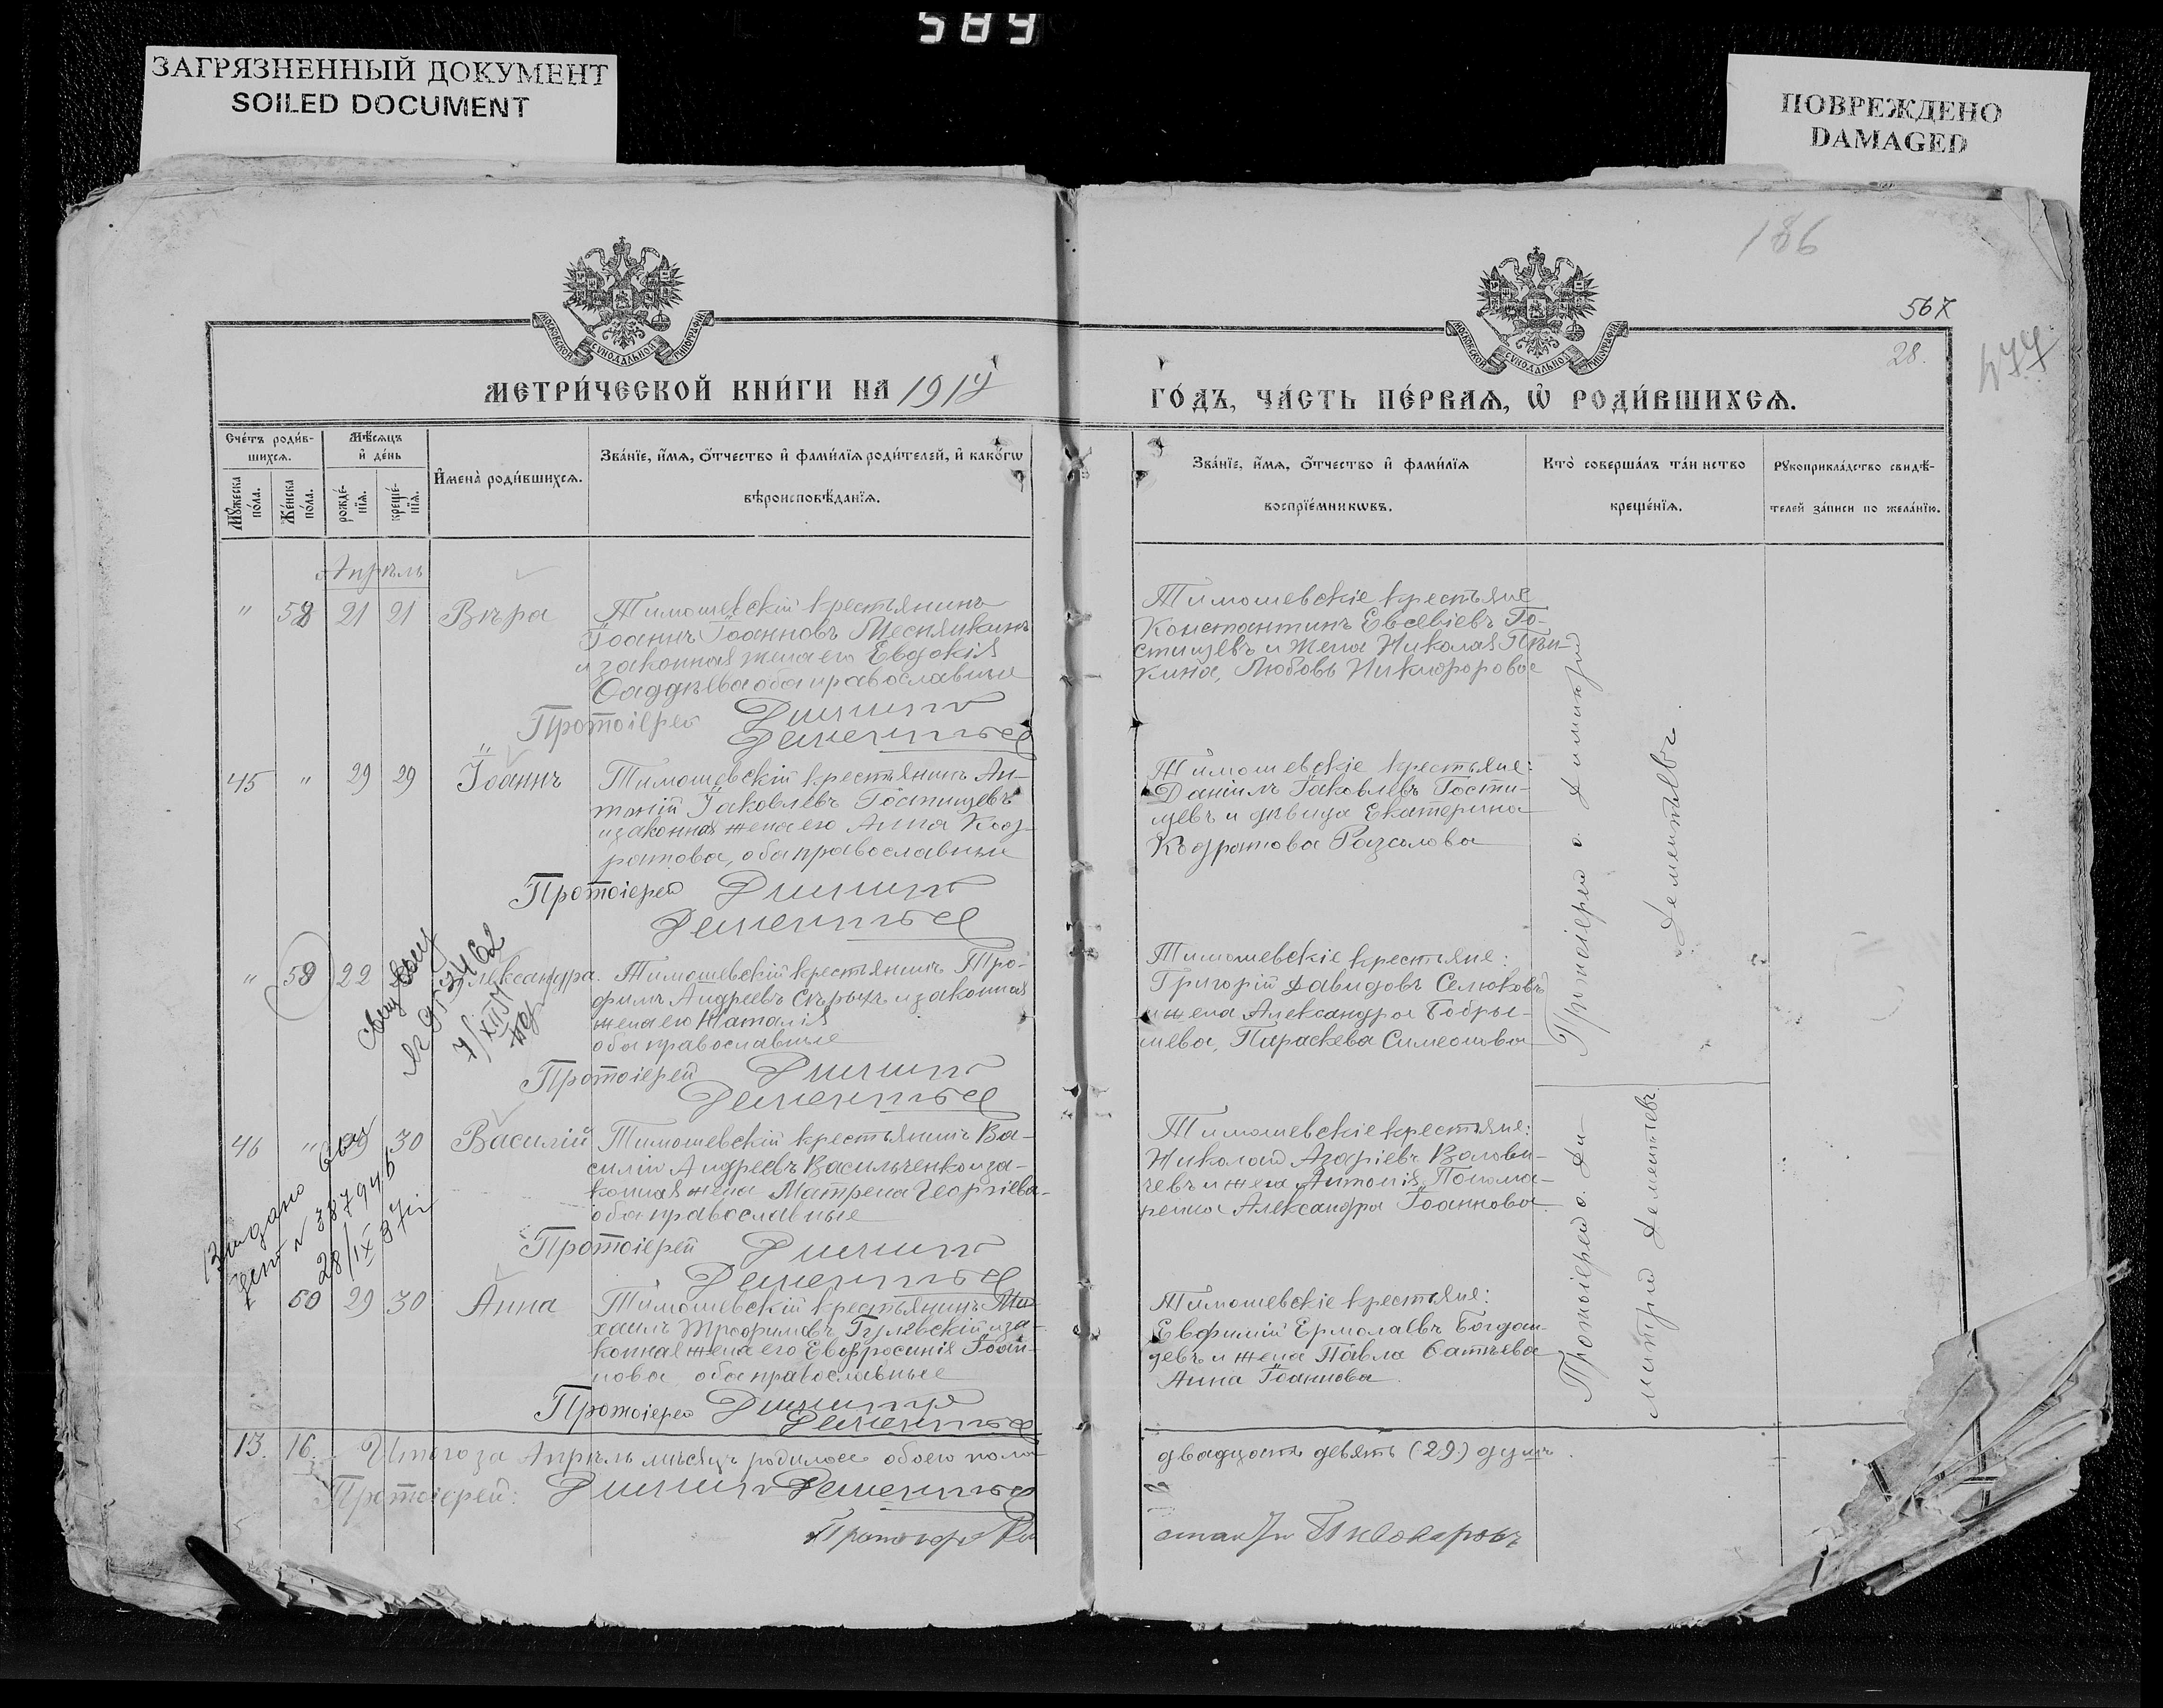 589
ЗАГРЯЗНЕННЫЙ ДОКУМЕНТ
SOILED DOCUMENT
ПОВРЕЖДЕНО
DAMAGED
186
567
28.
477
МОСКОВСКОЙ СѴНОДАЛЬНОЙ ТИПОГРАФІИ
МОСКОВСКОЙ СѴНОДАЛЬНОЙ ТИПОГРАФІИ
МЕТРИ́ЧЕСКОЙ КНИ́ГИ НА 1914
ГО́ДЪ, ЧА́СТЬ ПЕ́РВАѦ, Ѡ҆ РОДИ́ВШИХСѦ.
Сче́тъ роди́в-
шихсѧ.
Мꙋ́жеска по́ла.
Же́нска по́ла.
Мѣ́сѧцъ
и҆ де́нь
рожде́-
нїѧ.
креще́-
нїѧ.
И҆мена̀ роди́вшихсѧ.
Зва́нїе, и҆́мѧ, ѻ҆́тчество и҆ фами́лїѧ роди́телей, и҆ како́гѡ
вѣроисповѣ́данїѧ.
Зва́нїе, и҆́мѧ, ѻ҆́тчество и҆ фами́лїѧ
воспрїе́мникѡвъ.
Кто̀ соверша́лъ та́инство
креще́нїѧ.
Рꙋкоприкла́дство свидѣ́-
телей за́писи по жела́нїю.
Апрѣль
" 58 21 21 Вѣра
Тимошевскій крестьянинъ
Іоаннъ Іоанновъ
и законная жена его Евдокія
Фаддѣева оба православные
Протоіерей Димитрій
Дементьев
Тимошевскіе крестьяне
Константинъ Евсевіевъ Го-
стищевъ и жена Николая
кина, Любовь Никифорова
45 " 29 29 Іоаннъ
Тимошевскій крестьянинъ Ан-
тоній Іаковлевъ Гостищевъ
и законная жена его Анна Код-
ратова, оба православные
Протоіерей Димитрій
Дементьев
Тимошевскіе крестьяне:
Даніилъ Іаковлевъ Гости-
щевъ и дѣвица Екатерина
Кодратова
Протоіерей о. Димитрій
Дементьевъ.
" 59 22 Александра.
Тимошевскій крестьянинъ Тро-
фимъ Андреевъ Сѣрыхъ и законная
жена его Наталія
оба православные
Протоіерей Димитрій
Дементьев
Тимошевскіе крестьяне:
Григорій Давидовъ Селюковъ
и жена Александра Бобры-
шева, Параскева Симеонова
46 " 29 30 Василій
Тимошевскій крестьянинъ Ва-
силій Андреевъ Васильченко и за-
конная жена Матрена Георгіева
оба православные
Протоіерей Димитрій
Дементьев
Тимошевскіе крестьяне:
Николай Азаріевъ Волови-
чевъ и жена Антонія Понома-
ренка Александра Іоаннова
Протоіерей о. Ди-
митрій Дементьевъ.
Выдано
28/IX 37г
50 29 30 Анна
Тимошевскій крестьянинъ Ми-
хаилъ Трофимовъ Гулевскій и за-
конная жена его Евфросинія Іоан-
нова оба православные
Протоіерей Димитрій
Дементьев
Тимошевскіе крестьяне:
Евфимій Ермолаевъ Богдан-
цевъ и жена Павла Фатѣева
Анна Іоаннова.
13. 16. Итого за Апрѣль мѣсяцъ родилось обоего пола
двадцать девять (29) душъ.
Протоіерей: Димитрій Дементьев